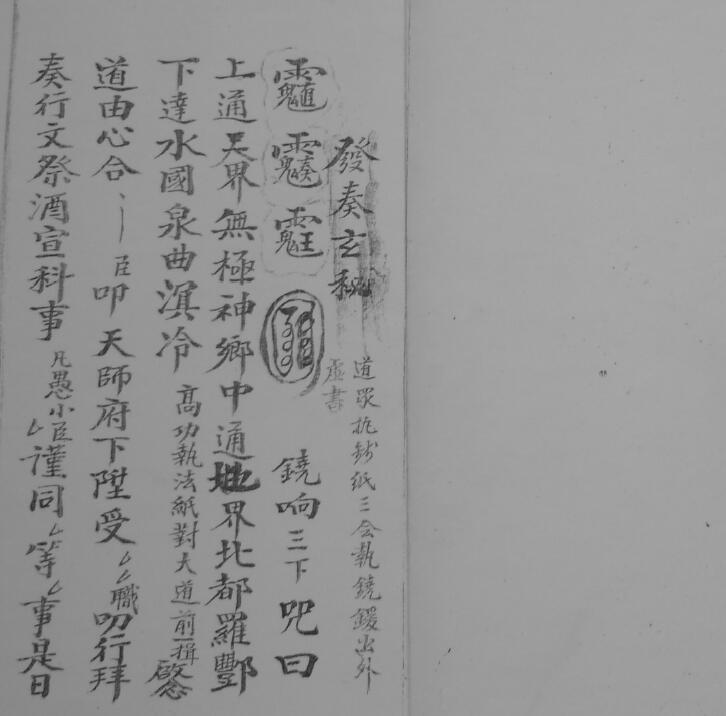 發奏玄秘
道眾執錢紙三会執鐃鈸出外
虛書
鐃响三下咒曰
上通天界無極神鄉中通地界北都羅酆
下達水國泉曲溟冷 高功執法紙對大道前一揖
道由心合 臣叩天師府下陞受職叨行拜
奏行文祭酒宣科事 凡愚小臣謹同等事是日